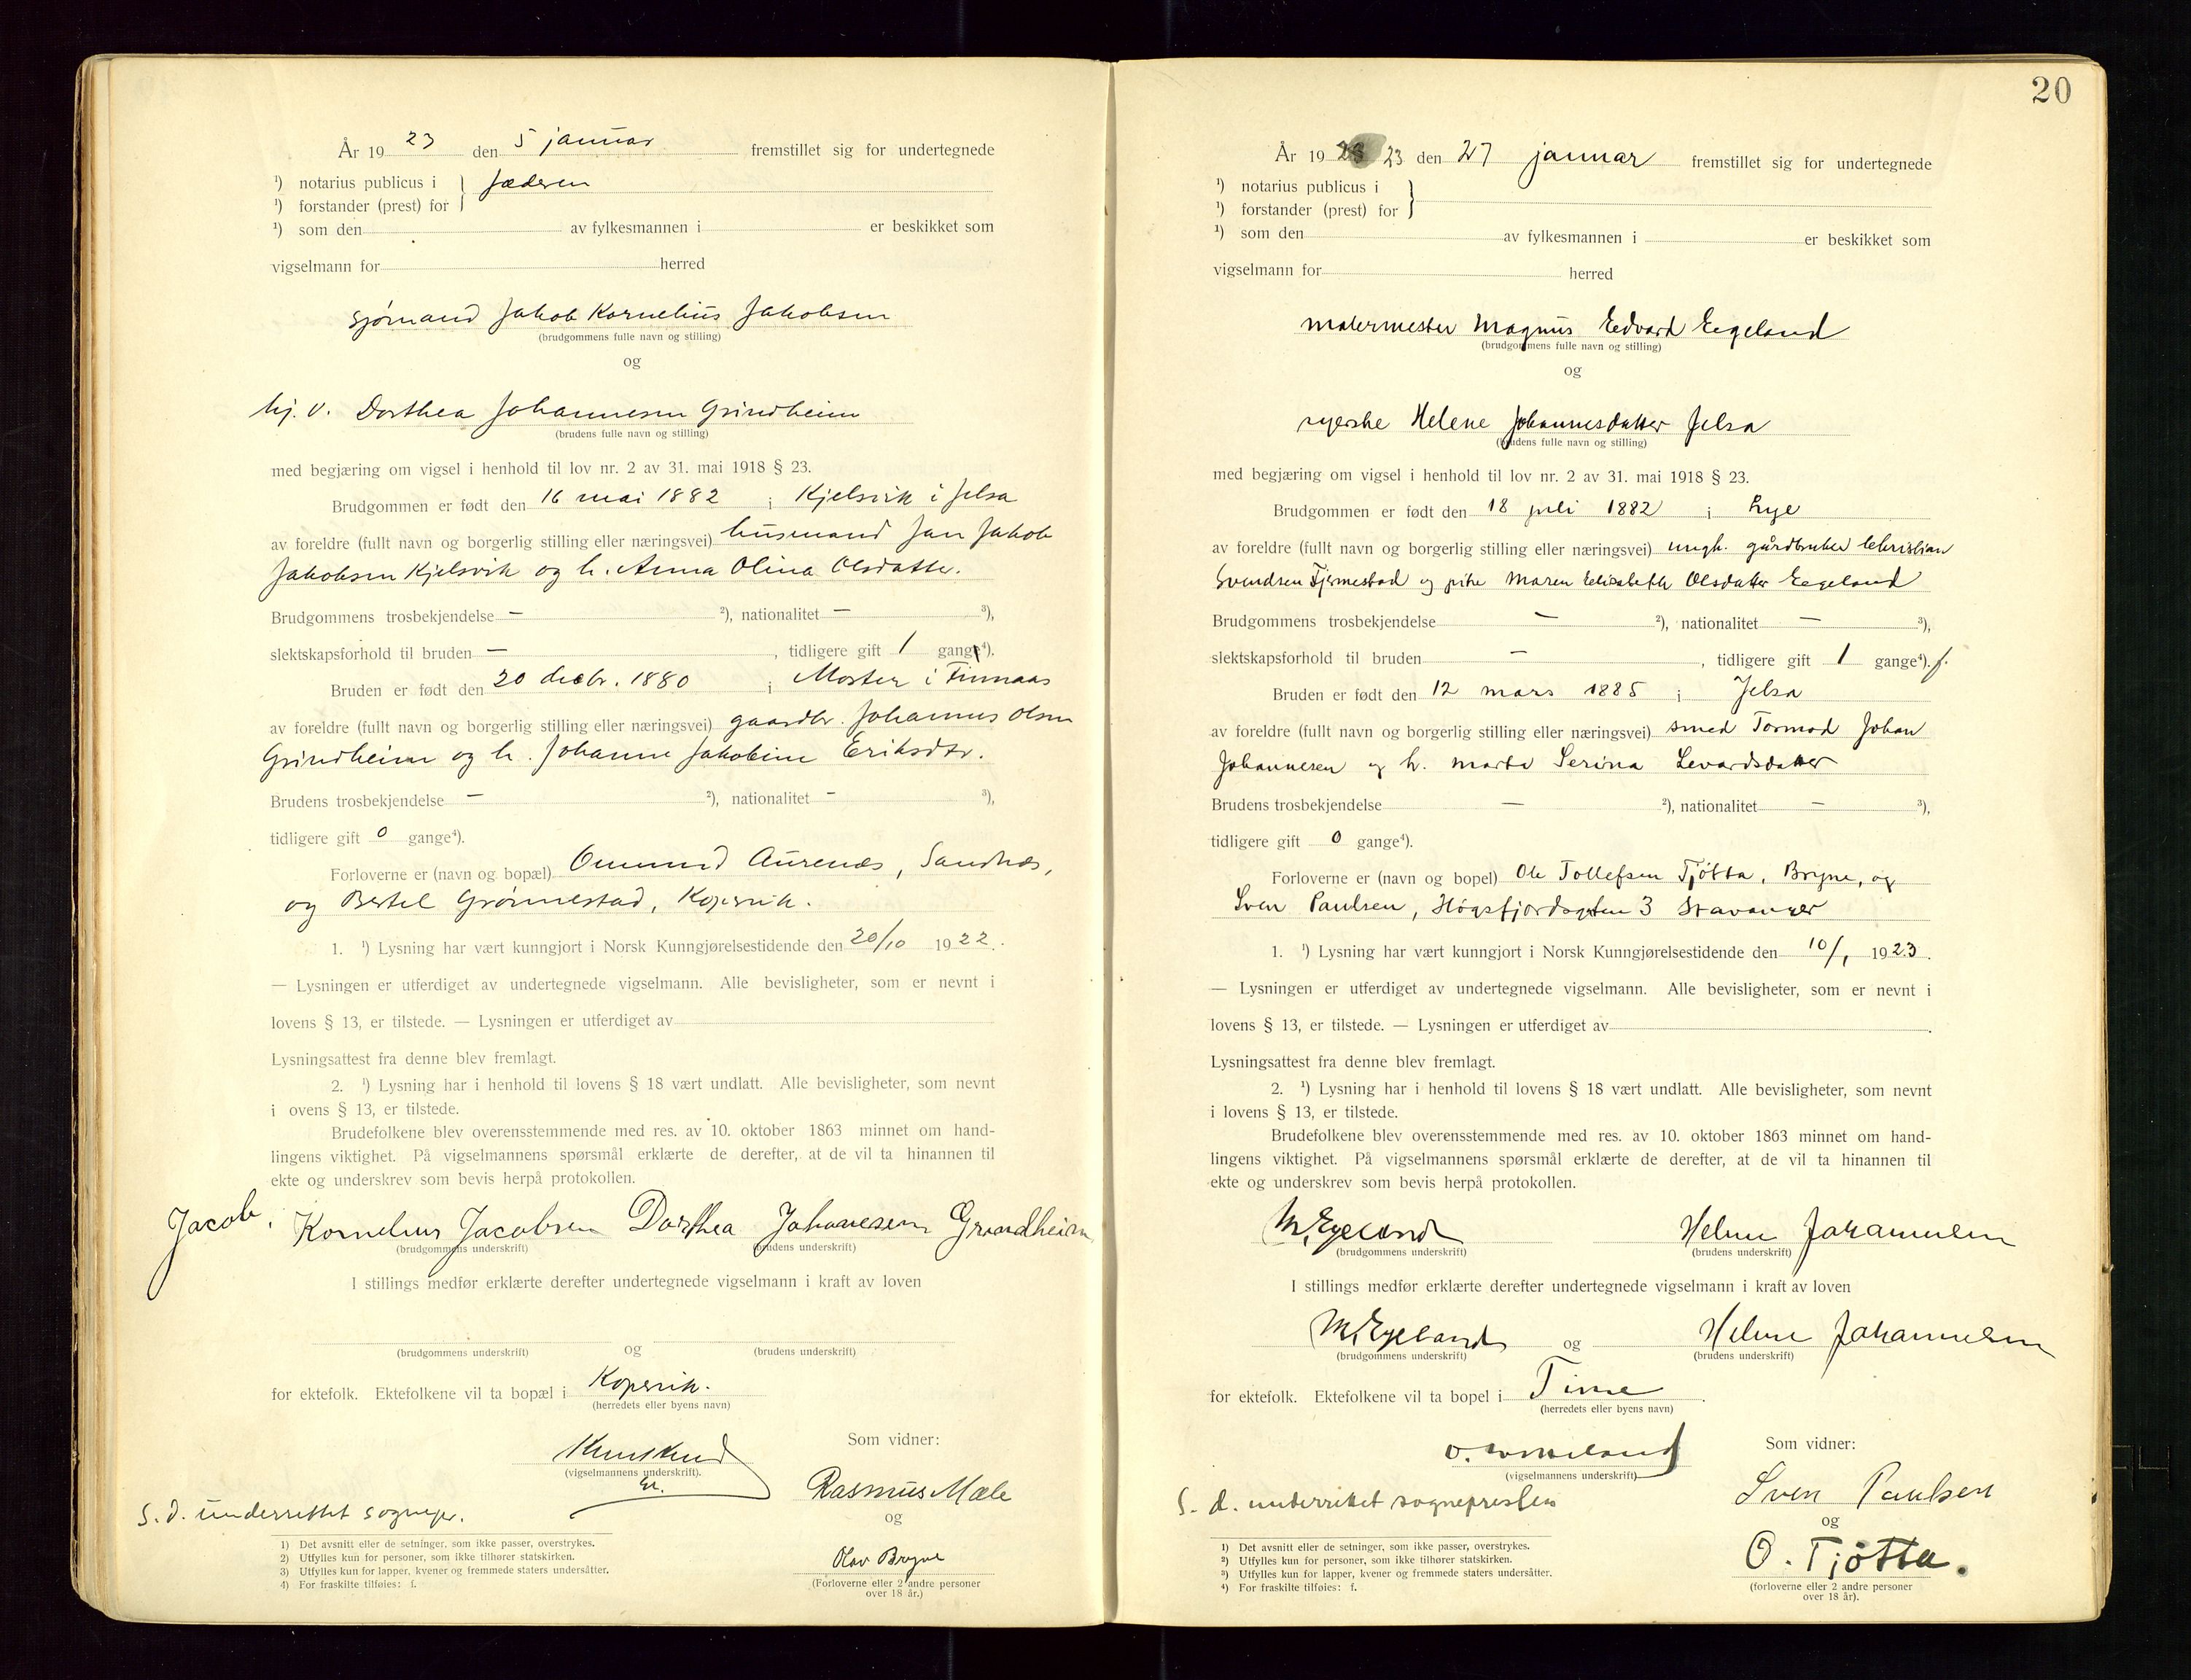 År 19 23 den 5 januar fremstillet sig for undertegnede
¹) notarius publicus i } Jæderen
¹) forstander (prest) for
¹) som den av fylkesmannen i er beskikket som
vigselmann for herred
sjømand Jakob Kornelius Jakobsen
(brudgommens fulle navn og stilling)
og
hj. v. Dorthea Johannesen Grindheim
(brudens fulle navn og stilling)
med begjæring om vigsel i henhold til lov nr. 2 av 31. mai 1918 § 23.
Brudgommen er født den 16 mai 1882 i Kjelsvik i Jelsa
av foreldre (fullt navn og borgerlig stilling eller næringsvei) husmand Jan Jakob
Jakobsen Kjelsvik og h. Anna Olina Olsdatter.
Brudgommens trosbekjendelse — ²), nationalitet — ³),
slektskapsforhold til bruden — , tidligere gift 1 gang⁴).
Bruden er født den 20 decbr. 1880 i Moster i Finnaas
av foreldre (fullt navn og borgerlig stilling eller næringsvei) gaardbr. Johannes Olsen
Grindheim og h. Johanne Jakobine Eriksdtr.
Brudens trosbekjendelse — ²), nationalitet — ³),
tidligere gift 0 gange⁴).
Forloverne er (navn og bopæl) Ommund Aurenes, Sandnes,
og Bertel Grønnestad, Kopervik.
1. ¹) Lysning har vært kunngjort i Norsk Kunngjørelsestidende den 20/10 1922.
— Lysningen er utferdiget av undertegnede vigselmann. Alle bevisligheter, som er nevnt i
lovens § 13, er tilstede. — Lysningen er utferdiget av
Lysningsattest fra denne blev fremlagt.
2. ¹) Lysning har i henhold til lovens § 18 vært undlatt. Alle bevisligheter, som nevnt
i ovens § 13, er tilstede.
Brudefolkene blev overensstemmende med res. av 10. oktober 1863 minnet om hand-
lingens viktighet. På vigselmannens spørsmål erklærte de derefter, at de vil ta hinannen til
ekte og underskrev som bevis herpå protokollen.
Jacob. Kornelius Jacobsen Dorthea Johanesen Grindheim
(brudgommens underskrift) (brudens underskrift)
I stillings medfør erklærte derefter undertegnede vigselmann i kraft av loven
og
(brudgommens underskrift) (brudens underskrift)
for ektefolk. Ektefolkene vil ta bopæl i Kopervik.
(herredets eller byens navn)
Som vidner:
(vigselmannens underskrift).
Rasmus Mæle
S. D. underrettet sognepr.
og
Olav Bryne
(Forloverne eller 2 andre personer
over 18 år.)
1) Det avsnitt eller de setninger, som ikke passer, overstrykes.
2) Utfylles kun for personer, som ikke tilhører statskirken.
3) Utfylles kun for lapper, kvener og fremmede staters undersåtter.
4) For fraskilte tilføies: f.
20
År 19 23 den 27 januar fremstillet sig for undertegnede
¹) notarius publicus i }
¹) forstander (prest) for
¹) som den av fylkesmannen i er beskikket som
vigselmann for herred
malermester Magnus Edvard Eegeland
(brudgommens fulle navn og stilling)
og
syerske Helene Johannesdatter Jelsa
(brudens fulle navn og stilling)
med begjæring om vigsel i henhold til lov nr. 2 av 31. mai 1918 § 23.
Brudgommen er født den 18 juli 1882 i Lye
av foreldre (fullt navn og borgerlig stilling eller næringsvei) ungk. gårdbruker Christian
Svendsen Tjermestad og pike Maren Elisabeth Olsdatter Eegeland
Brudgommens trosbekjendelse — ²), nationalitet — ³),
slektskapsforhold til bruden — , tidligere gift 1 gange⁴). f.
Bruden er født den 12 mars 1885 i Jelsa
av foreldre (fullt navn og borgerlig stilling eller næringsvei) smed Tormod Johan
Johannesen og h. Marta Serina Sevardsdatter
Brudens trosbekjendelse — ²), nationalitet — ³),
tidligere gift 0 gange⁴).
Forloverne er (navn og bopel) Ole Tollefsen Tjøtta, Bryne, og
Sven Paulsen, Høgsfjordgaten 3 Stavanger
1. ¹) Lysning har vært kunngjort i Norsk Kunngjørelsestidende den 10/1 1923.
— Lysningen er utferdiget av undertegnede vigselmann. Alle bevisligheter, som er nevnt i
lovens § 13, er tilstede. — Lysningen er utferdiget av
Lysningsattest fra denne blev fremlagt.
2. ¹) Lysning har i henhold til lovens § 18 vært undlatt. Alle bevisligheter, som nevnt
i lovens § 13, er tilstede.
Brudefolkene blev overensstemmende med res. av 10. oktober 1863 minnet om hand-
lingens viktighet. På vigselmannens spørsmål erklærte de derefter, at de vil ta hinannen til
ekte og underskrev som bevis herpå protokollen.
M. Egeland Helene Johannesen
(brudgommens underskrift) (brudens underskrift)
I stillings medfør erklærte derefter undertegnede vigselmann i kraft av loven
M. Egeland og Helene Johannesen
(brudgommens underskrift) (brudens underskrift)
for ektefolk. Ektefolkene vil ta bopel i Time
(herredets eller byens navn)
Som vidner:
(vigselmannens underskrift)
Sven Paulsen
S. d. underrettet sognepresten
og
O. Tjøtta.
(forloverne eller 2 andre personer
over 18 år).
1) Det avsnitt eller de setninger, som ikke passer, overstrykes.
²) Utfylles kun for personer, som ikke tilhører statskirken.
³) Utfylles kun for lapper, kvener og fremmede staters undersåtter.
⁴) For fraskilte tilføies: f.